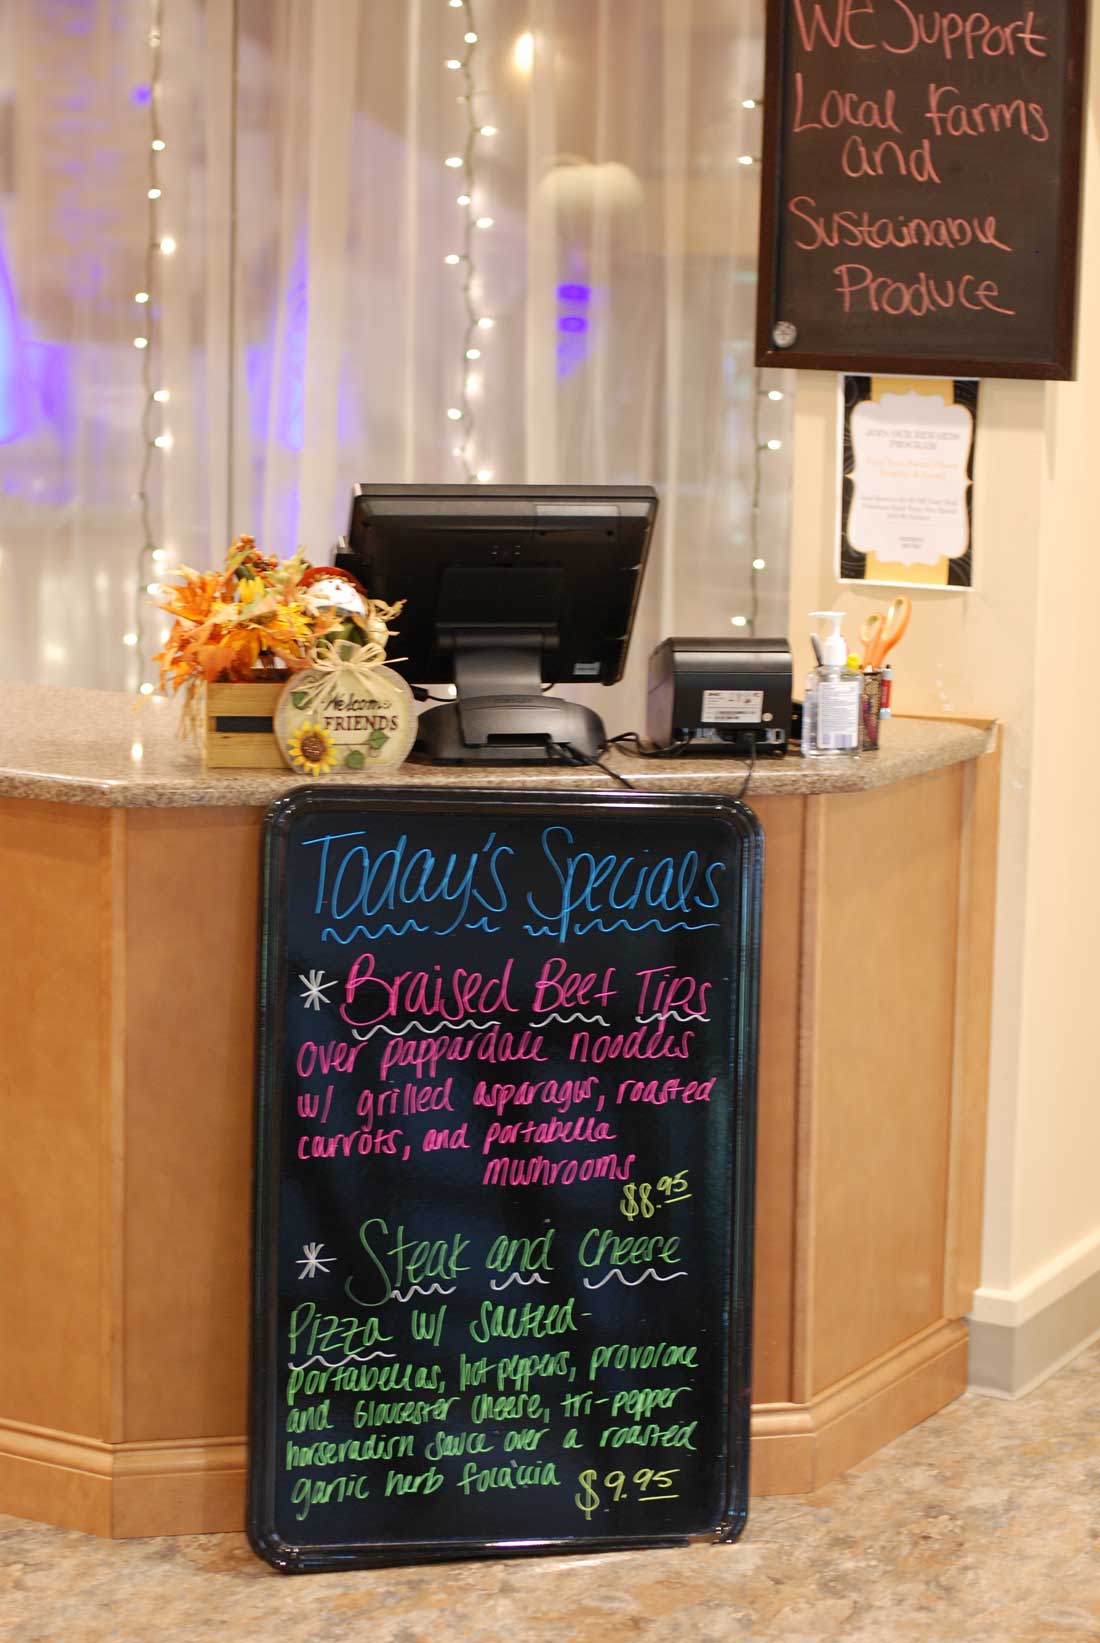 We Support
Local Farms
and
Sustainable
Produce
JOIN OUR REWARDS
PROGRAM
Welcome
FRIENDS
Today's Specials
* Braised Beef Tips
over pappardale noodles
w/ grilled asparagus, roasted
carrots, and portabella
mushrooms
$8.95
* Steak and Cheese
Pizza w/ sauteed-
portabellas, hot peppers, provolone
and Gloucester cheese, tri-pepper
horseradish sauce over a roasted
garlic herb focaccia $9.95